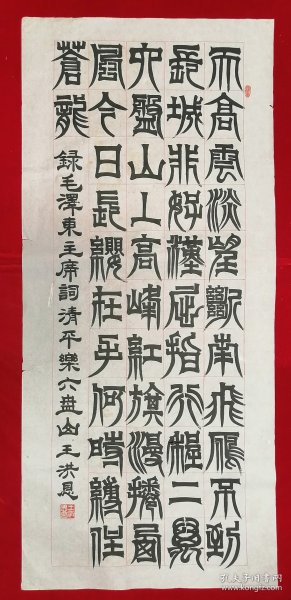 天高雲淡望斷南飛雁不到
長城非好漢屈指行程二萬
六盤山上高峰紅旗漫捲西
風今日長纓在手何時縛住
蒼龍
録毛澤東主席詞清平樂六盘山王洪恩